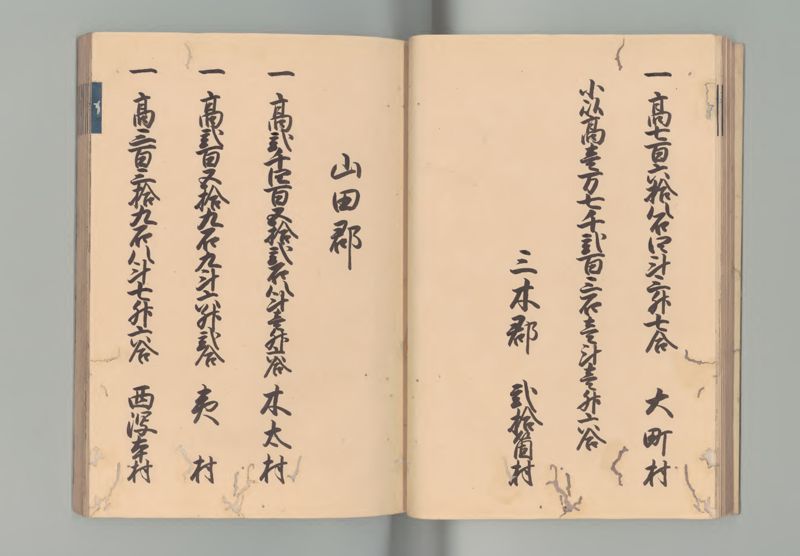 一高七百六拾八石四斗三升七合　大町村
小以高壱万七千弐百三石壱斗壱升六合
三木郡　弐拾箇村
山田郡
一高弐千四百五拾弐石八斗壱升六合　木太村
一高弐百五拾九石九斗六升弐合　夷村
一高三百三拾九石八斗七升六合　西潟本村